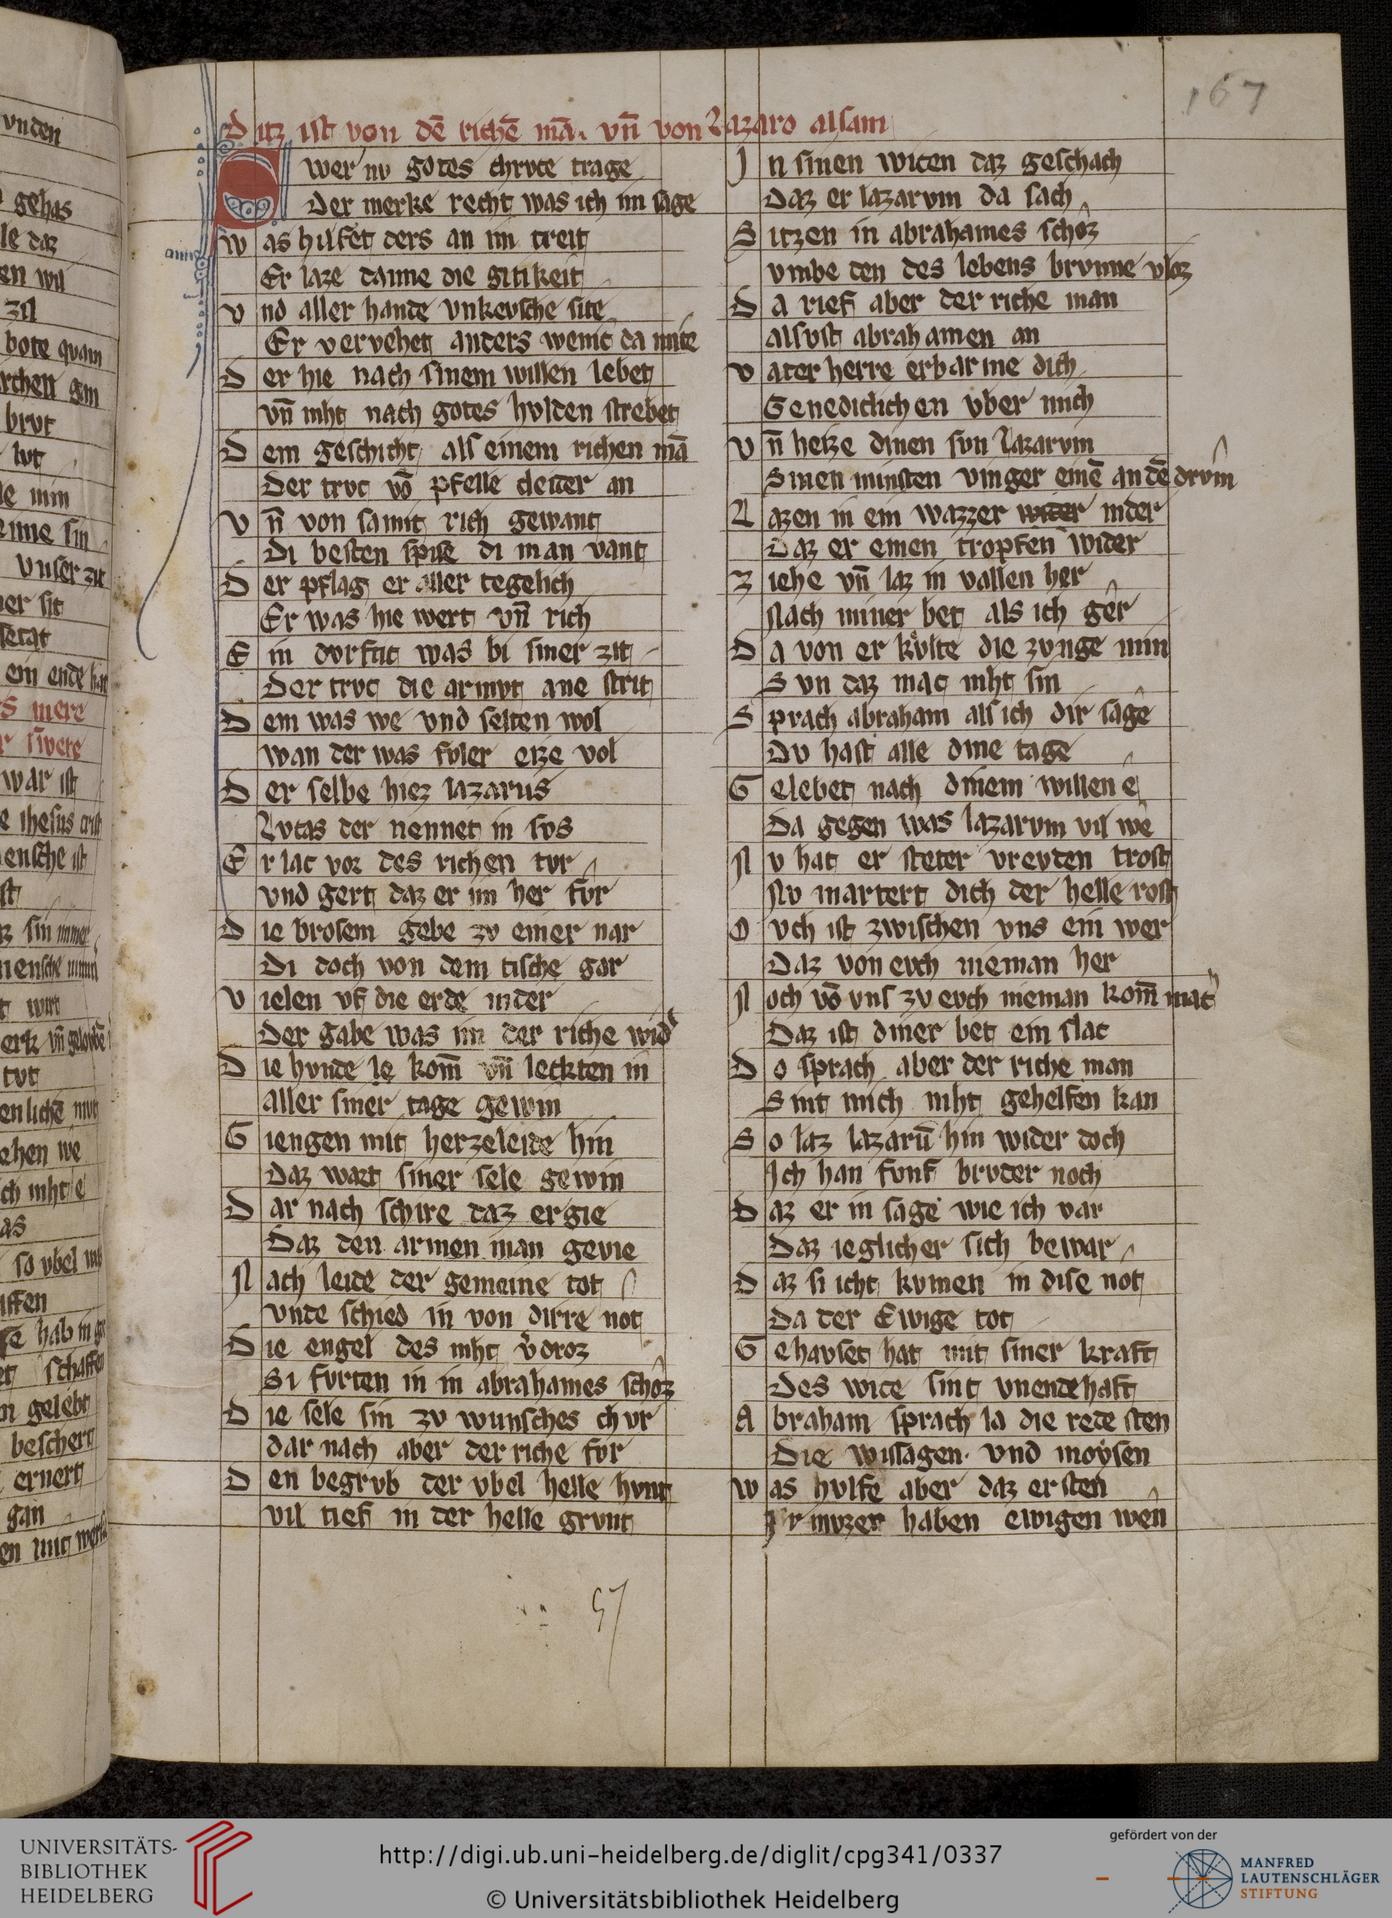 167
Ditz ist von dē richē mā. vn̄ von Lazaro alsam
Swer nv gotes chrvce trage
Der merke recht was ich im sage
was hilfet ders an im treit
Er laze danne die gitikeit
vnd aller hande vnkevsche site
Er vervehet anders wenic da mite
Der hie nach sinem willen lebet
vn̄ niht nach gotes hvlden strebet
Dem geschicht als einem richen mā
Der trvc vō pfelle cleider an
vn̄ von samit rich gewant
Di besten spise di man vant
Der pflag er aller tegelich
Er was hie wert vn̄ rich
Ein dvrftic was bi siner zit
Der trvc die armvt ane strit
Dem was we vnd selten wol
wan der was fvler eize vol
Der selbe hiez lazarus
Lvcas der nennet in svs
Er lac vor des richen tvr
vnd gert daz er im her fvr
Die brosem gebe zv einer nar
Di doch von dem tische gar
vielen vf die erde nider
Der gabe was im der riche wid
Die hvnde ie kom̄ vn̄ leckten in
aller siner tage gewin
Giengen mit herzeleide hin
Daz wart siner sele gewin
Dar nach schire daz ergie
Daz den armen man gevie
Nach leide der gemeine tot
vnde schied in von dirre not
Die engel des niht v̄droz
Si fvrten in in abrahames schoz
Die sele sin zv wunsches chvr
dar nach aber der riche fvr
Den begrvb der vbel helle hvnt
vil tief in der helle grvnt
57
In sinen wicen daz geschach
Daz er lazarvm da sach
Sitzen in abrahames schoz
vmbe den des lebens brvnne vloz
Da rief aber der riche man
alsvst abrahamen an
vater herre erbarme dich
Genediclichen vber mich
vn̄ heize dinen svn Lazarvm
Sinen minsten vinger einē an dē drvm
Nazen in ein wazzer wider nider
Daz er einen tropfen wider
ziehe vn̄ laz in vallen her
Nach miner bet als ich ger
Da von er kvlte die zvnge min
Svn daz mac niht sin
Sprach abraham als ich dir sage
Dv hast alle dine tage
Gelebet nach dinem willen e
Da gegen was lazarvm vil we
Nv hat er steter vrevden trost
Nv martert dich der helle rost
Ovch ist zwischen vns ein wer
Daz von evch nieman her
Noch vō vns zv evch nieman kom̄ mac
Daz ist diner bet ein slac
Do sprach aber der riche man
Sint mich niht gehelfen kan
So laz lazarū hin wider doch
Ich han fvnf brvder noch
Daz er in sage wie ich var
Daz ieglicher sich bewar
Daz si icht kvmen in dise not
Da der Ewige tot
Gehavset hat mit siner kraft
Des wice sint vnendehaft
Abraham sprach la die rede sten
Die wissagen. vnd moÿsen
was hvlfe aber daz er sten
Ir mvzer haben ewigen wen
vnden
gehas
le daz
en wil
zil
bote quam
brvt
lvt
le min
enne sin
vnser zit
ner sit
ein ende hat
mere
war ist
e ihesus crist
ensche ist
z sin immer
t wirt
tvt
ehen we
ch niht e
as
so vbel
iffen
schaffen
n gelebt
beschert
ernert
gan
UNIVERSITÄTS-
BIBLIOTHEK
HEIDELBERG
http://digi.ub.uni-heidelberg.de/diglit/cpg341/0337
© Universitätsbibliothek Heidelberg
gefördert von der
MANFRED
LAUTENSCHLÄGER
STIFTUNG